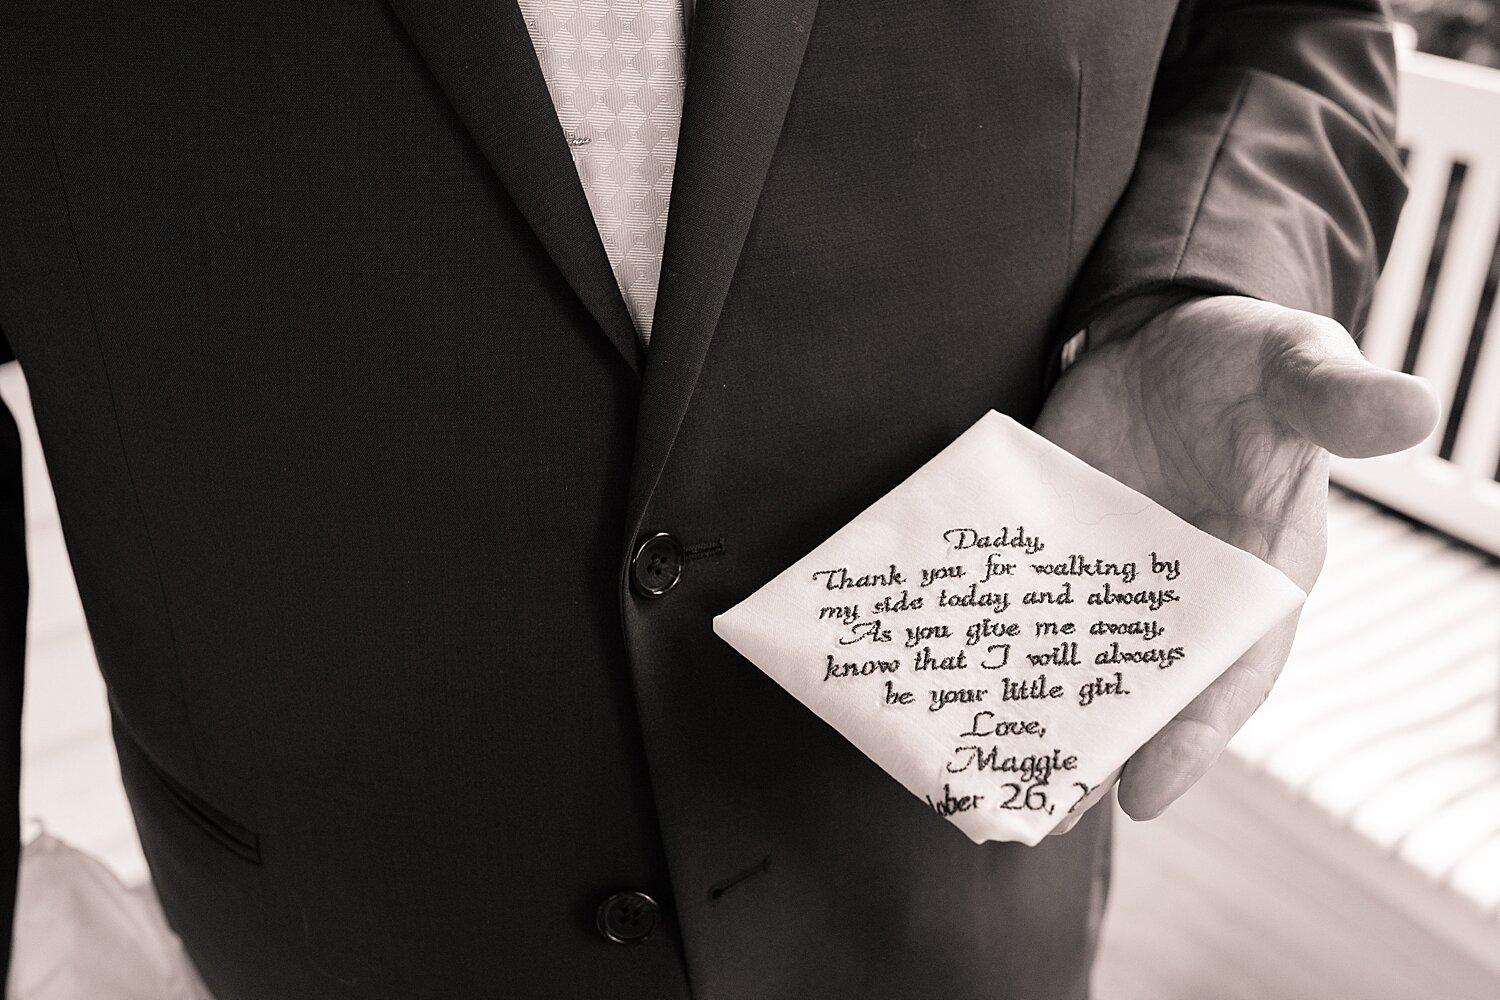 Daddy,
Thank you for walking by
my side today and always.
As you give me away,
know that I will always
be your little girl.
Love,
Maggie
ober 26, 2